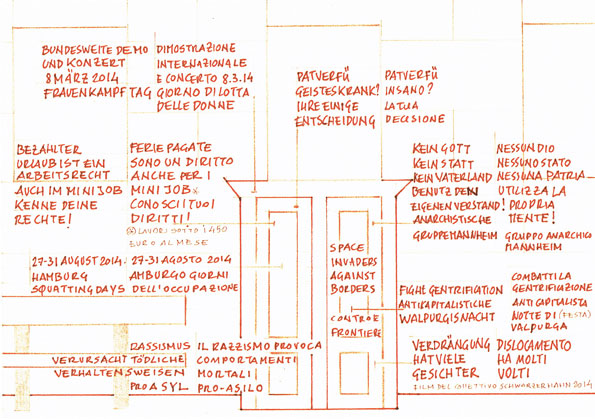 BUNDESWEITE DEMO
UND KONZERT
8 MÄRZ 2014
FRAUENKAMPFTAG
DIMOSTRAZIONE
INTERNAZIONALE
E CONCERTO 8.3.14
GIORNO DI LOTTA
DELLE DONNE
PATVERFÜ
GEISTESKRANK?
IHRE EINIGE
ENTSCHEIDUNG
PATVERFÜ
INSANO?
LA TUA
DECISIONE
BEZAHLTER
URLAUB IST EIN
ARBEITSRECHT
AUCH IM MINIJOB
KENNE DEINE
RECHTE!
FERIE PAGATE
SONO UN DIRITTO
ANCHE PER I
MINI JOB *
CONOSCI I TUOI
DIRITTI!
(*) LAVORI SOTTO I 450
EURO AL MESE
KEIN GOTT
KEIN STATT
KEIN VATERLAND
BENUTZ DEN
EIGENEN VERSTAND!
ANARCHISTISCHE
GRUPPE MANNHEIM
NESSUN DIO
NESSUNO STATO
NESSUNA PATRIA
UTILIZZA LA
PROPRIA
MENTE!
GRUPPO ANARCHICO
MANNHEIM
27-31 AUGUST 2014
HAMBURG
SQUATTING DAYS
27-31 AGOSTO 2014
AMBURGO GIORNI
DELL'OCCUPAZIONE
SPACE
INVADERS
AGAINST
BORDERS
CONTRO LE
FRONTIERE
FIGHT GENTRIFICATION
ANTIKAPITALISTICHE
WALPURGISNACHT
COMBATTI LA
GENTRIFICAZIONE
ANTICAPITALISTA
NOTTE DI (FESTA)
VALPURGA
RASSISMUS
VERURSACHT TÖDLICHE
VERHALTENSWEISEN
PRO ASYL
IL RAZZISMO PROVOCA
COMPORTAMENTI
MORTALI
PRO-ASILO
VERDRÄNGUNG
HAT VIELE
GESICHTER
DISLOCAMENTO
HA MOLTI
VOLTI
FILM DEL COLLETTIVO SCHWARZER HAHN 2014